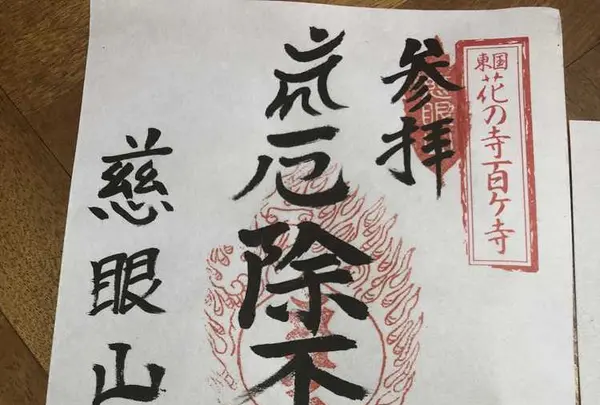 東国
花の寺百ケ寺
参拝
厄除不
慈眼山